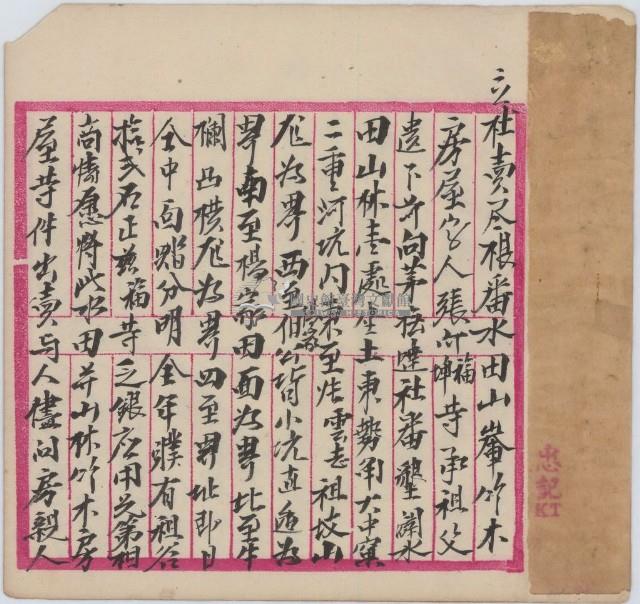 立杜賣尽根番水田山崙竹木
房屋字人張升福坤等承祖父
遺下有向茅社番墾闢水
田山林壹處坐土東勢角大中窠
二重河坑內東至張雲志祖坟山
尪為界西至伯公背小坑直透為
界南至楊家田面為界北至牛
欄凸橫尪為界四至界址即日
仝中面踏分明仝年贌有租谷
拾弍石正茲福等乏銀应用兄弟相
商情愿將此水田并山林竹木房
屋等件出賣与人儘問房親人
忠記
KT